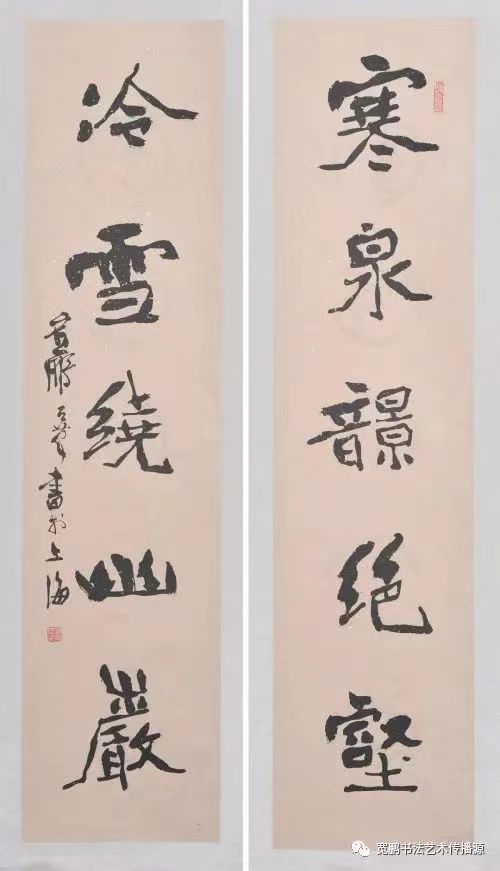 寒泉絶壑
冷雪繞幽巖
鵬書於上海
宽鹏书法艺术传播源